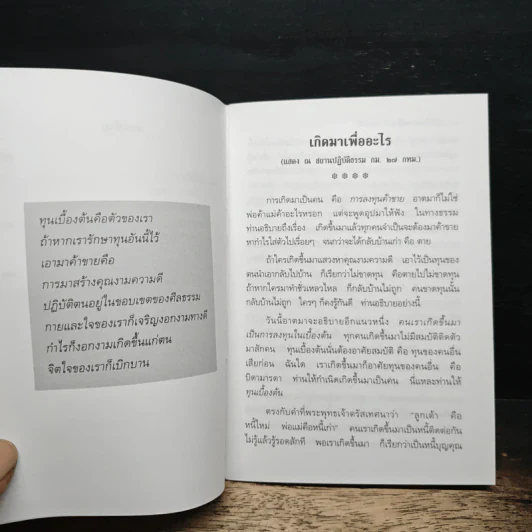 ทุนเบื้องต้นคือตัวของเรา
ถ้าหากเรารักษาทุนอันนี้ไว้
เอามาค้าขายคือ
การมาสร้างคุณงามความดี
ปฏิบัติตนอยู่ในขอบเขตของศีลธรรม
กายและใจของเราก็เจริญงอกงามทางดี
กำไรก็งอกงามเกิดขึ้นแก่ตน
จิตใจของเราก็เบิกบาน
เกิดมาเพื่ออะไร
(แสดง ณ สถานปฏิบัติธรรม กม. ๒๗ กทม.)
การเกิดมาเป็นคน คือ การลงทุนค้าขาย อาตมาก็ไม่ใช่
พ่อค้าแม่ค้าอะไรหรอก แต่จะพูดอุปมาให้ฟัง ในทางธรรม
ท่านอธิบายถึงเรื่อง เกิดขึ้นมาแล้วทุกคนจำเป็นจะต้องมาค้าขาย
หากำไรใส่ตัวไปเรื่อยๆ จนกว่าจะได้กลับบ้านเก่า คือ ตาย
ถ้าใครเกิดขึ้นมาแสวงหาคุณงามความดี เอาไว้เป็นทุนของ
ตนนำเอากลับไปบ้าน ก็เรียกว่าไม่ขาดทุน คือตายไปไม่ขาดทุน
ถ้าหากใครมาทำชั่วเหลวไหล ก็กลับบ้านไม่ถูก คนขาดทุนนั้น
กลับบ้านไม่ถูก ใครๆ ก็คงรู้กันดี ท่านอธิบายอย่างนี้
วันนี้อาตมาจะอธิบายอีกแนวหนึ่ง คนเราเกิดขึ้นมา
เป็นการลงทุนในเบื้องต้น ทุกคนเกิดขึ้นมาไม่มีสมบัติติดตัว
มาสักคน ทุนเบื้องต้นนั้นต้องอาศัยสมบัติ คือ ทุนของคนอื่น
เสียก่อน ฉันใด เราเกิดขึ้นมาก็อาศัยทุนของคนอื่น คือ
บิดามารดา ท่านให้กำเนิดเกิดขึ้นมาเป็นคน นี่แหละท่านให้
ทุนเบื้องต้น
ตรงกับคำที่พระพุทธเจ้าตรัสเทศนาว่า "ลูกเต้า คือ
หนี้ใหม่ พ่อแม่คือหนี้เก่า" คนเราเกิดขึ้นมาเป็นหนี้ติดต่อกัน
ไม่รู้แล้วรู้รอดสักที พอเราเกิดขึ้นมา ก็เรียกว่าเป็นหนี้บุญคุณ